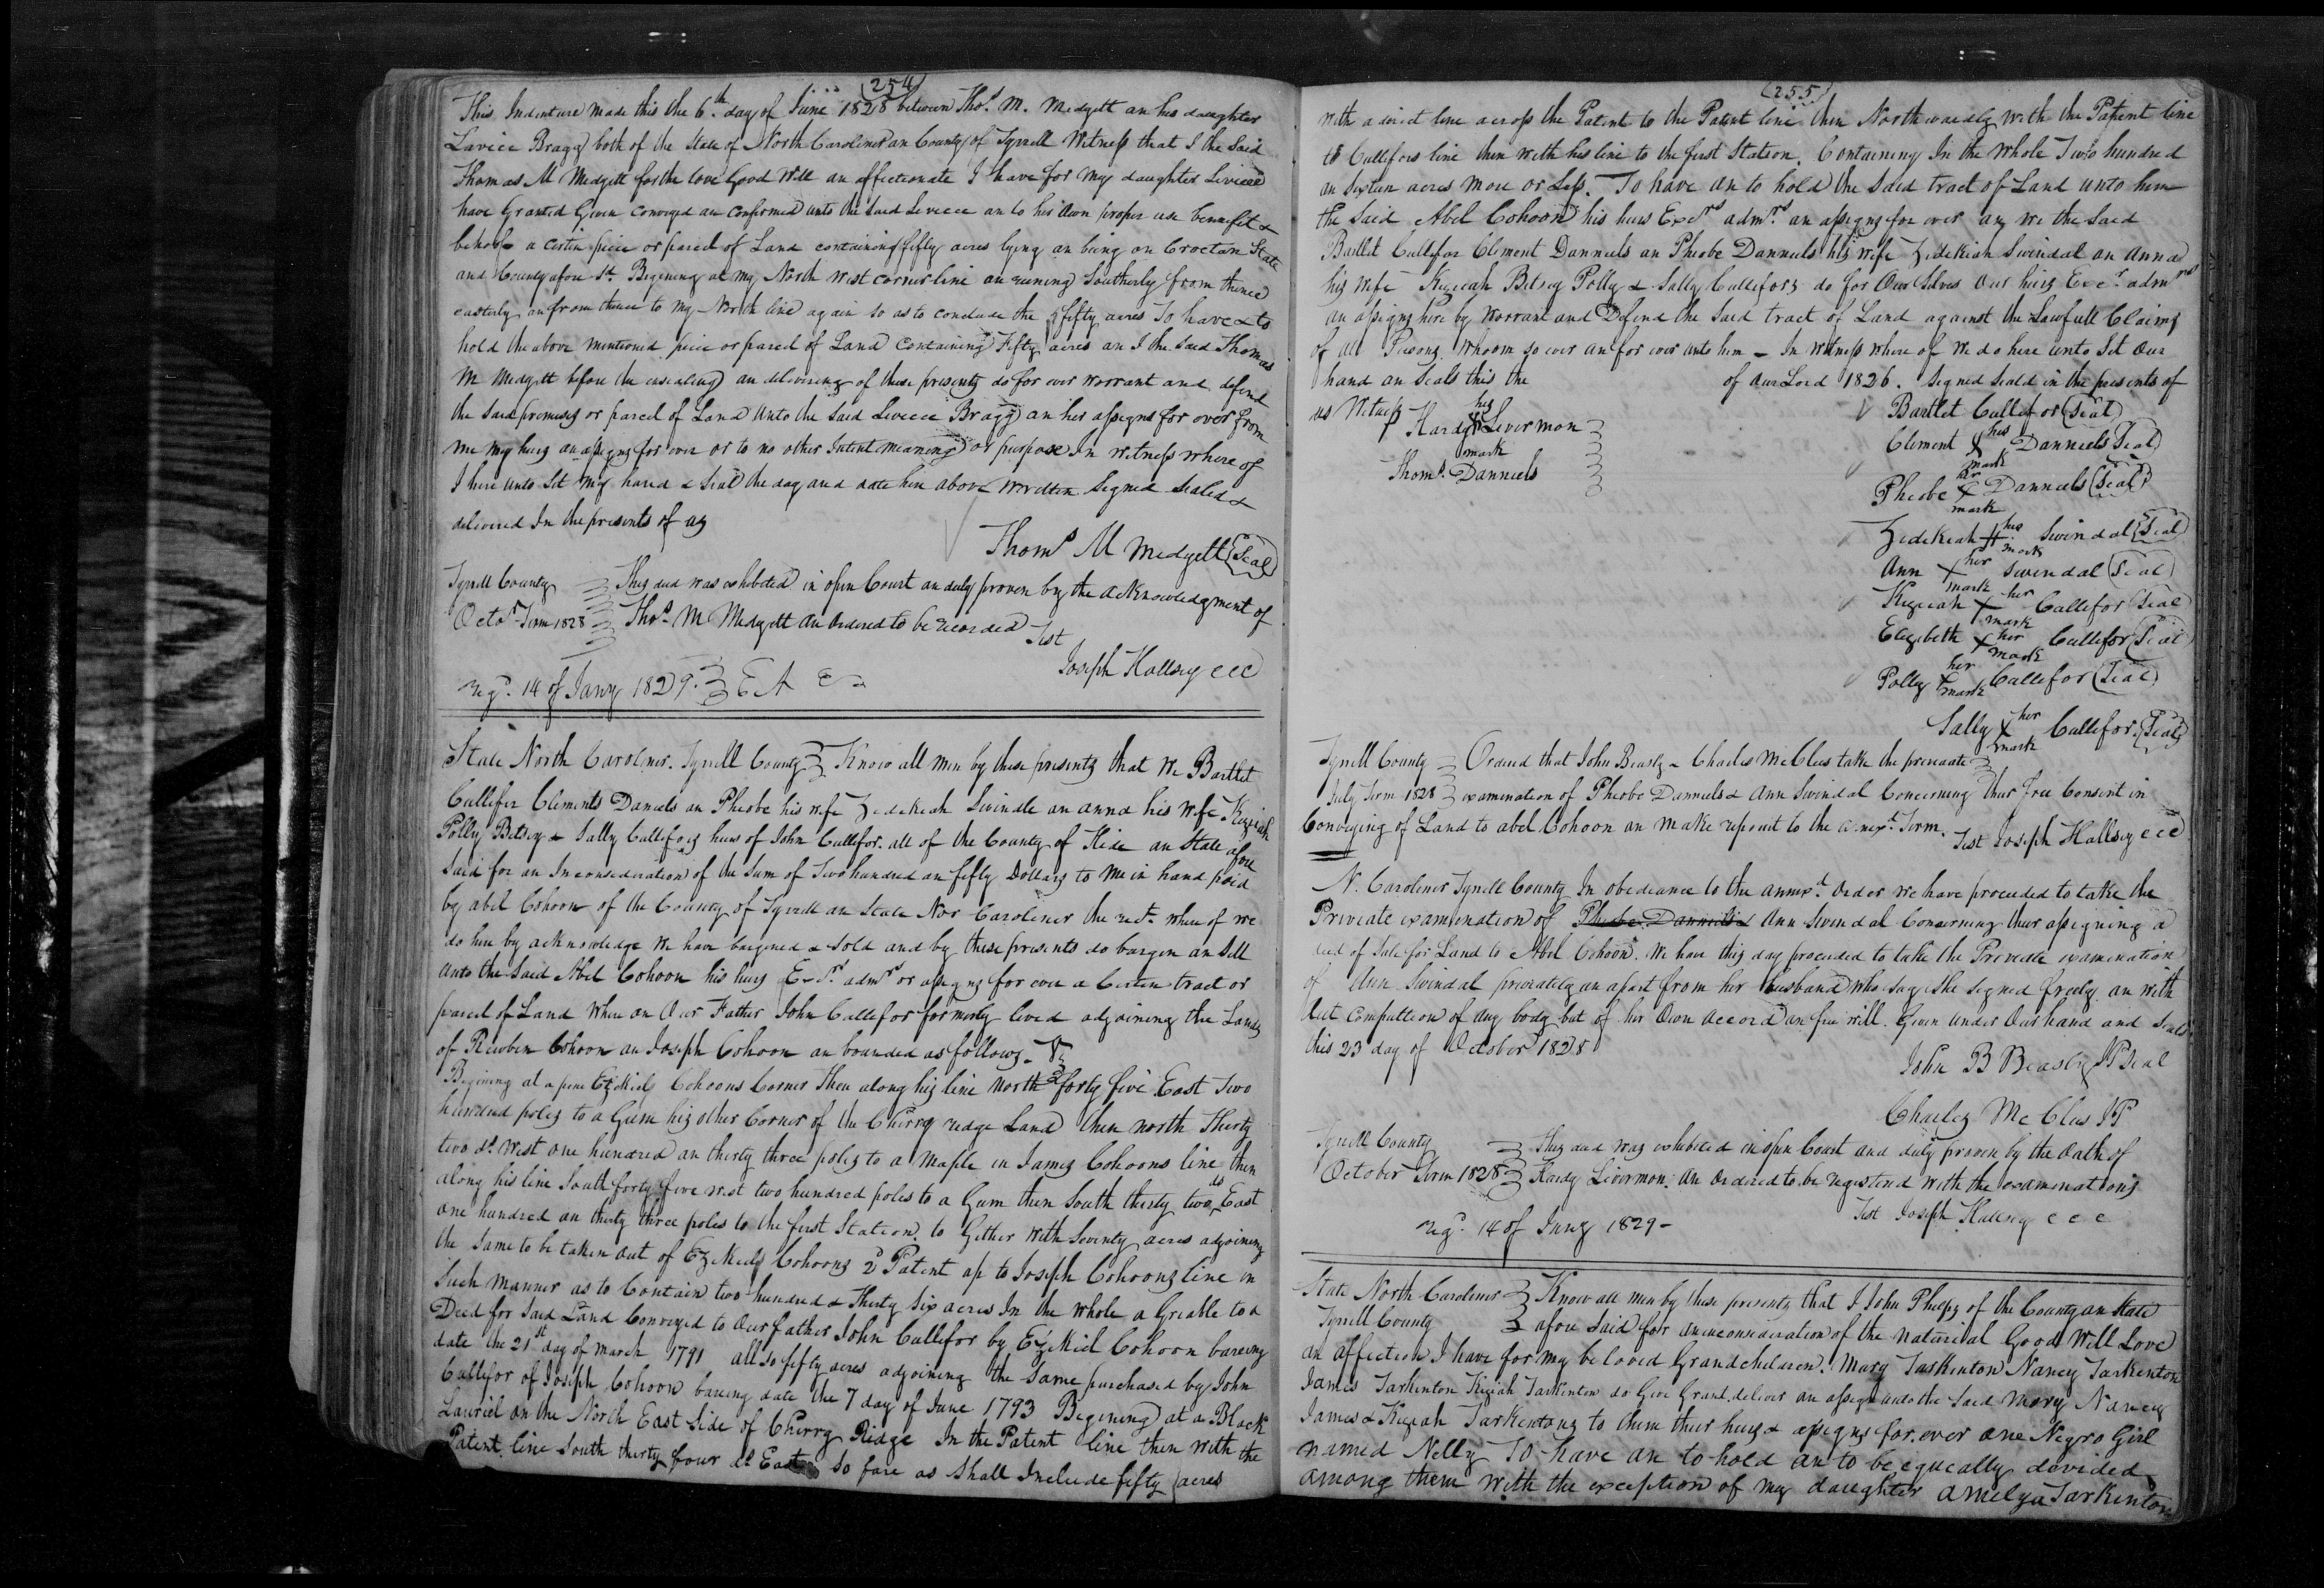 (254)
This Indenture made this the 6th day of June 1828 between Thos. M. Medgett an his daughter
Lavice Bragg both of the State of North Caroliner an County of Tyrrell Witness that I the Said
Thomas M Medgett for the love Good Will an affectionate I have for my daughter Liviece
have Granted Given Conveyed an Confirmed unto the Said Leviece an to her Own proper use bennefit &
behoof a certin piece or parcel of Land containing fifty acres lying an being on Croctan State
and County afore Sd. Begining at my North west corner line an runing Southerly from thence
easterly an from thence to my North line again so as to conclude the fifty acres To have & to
hold the above mentioned piece or parcel of Land Containing Fifty acres an I the Said Thomas
M Medgett before the ensealing an delivering of these presents do for ever warrant and defend
the Said premises or parcel of Land unto the Said Leviece Bragg an her assigns for ever from
me my heirs an assigns for ever or to no other Intent meaning or purpose In witness where of
I here unto Set my hand & Seal the day and date here above Written Signed Sealed &
delivered In the presents of us
Thoms M Medgett (Seal)
Tyrrell County This deed was exhibited in open Court an duly proven by the acknowledgment of
Octor. Term 1828 Thos. M Medgett an Ordered to be recorded
Test
Joseph Hallsey CCC
regd. 14 of Jany 1829.
State North Caroliner. Tyrrell County Know all men by these presents that We Bartlet
Cullifer Clements Daniels an Pheobe his wife Zedekeah Swindle an anna his wife Kiziah
Polly Betsey & Sally Cullefors heirs of John Cullifor. all of the County of Hide an State afore
Said for an In consideration of the Sum of Two hundred an fifty Dollars to Me in hand paid
by abel Cohoon of the County of Tyrrell an State Nor Caroliner the rect. where of we
do here by acknowledge We have bargened & Sold and by these presents do bargen an Sell
unto the Said Abel Cohoon his heirs Exrs. admrs or assigns for ever a Certen tract or
parcel of Land Where on Our Father John Cullefor formerly lived adjoining the Lands
of Reuben Cohoon an Joseph Cohoon an bounded as follows.
Begining at a pine Ezekiels Cohoons Corner Then along his line North forty five East Two
hundred poles to a Gum his other Corner of the Cherry redge Land then north Thirty
two ds. West one hundred an thirty three poles to a Maple in James Cohoons line then
along his line South forty five west two hundred poles to a Gum then South thirty two ds East
one hundred an thirty three poles to the first Station. to Gether With Seventy acres adjoining
the Same to be taken Out of Ezekiels Cohoons 2d Patent up to Joseph Cohoons line in
Such Manner as to Contain two hundred & Thirty Six acres In the Whole a Griable to a
Deed for Said Land Conveyed to Our father John Cullifor by Ezekiel Cohoon bareing
date the 21st day of March 1791 all so fifty acres adjoining the Same purchased by John
Cullifor of Joseph Cohoon bareing date the 7 day of June 1793 Begining at a Black
Lauriel on the North East Side of Cherry Ridge In the Patent line then with the
Patent line South thirty four ds East so fare as Shall Include fifty acres
(255)
with a direct line across the Patent to the Patent line then Northwardly with the Patent line
to Cullifors line then With his line to the first Station. Containing In the Whole Two hundred
an Sixteen acres More or Less. To have an to hold the Said tract of Land unto him
the Said Abel Cohoon his heirs Exrs admrs. an assigns for ever an we the Said
Bartlit Cullifor Clement Danniels an Pheobe Danniels his wife Zedekiah Swindal an Anna
his Wife Keziah Betsey Polly & Sally Cullifors do for Our Selves Our heirs Exr. admrs
an assigns here by Warrant and Defend the Said tract of Land against the Lawfull Claims
of all Persons Whoom so ever an for ever unto him - In Witness where of We do here unto Set Our
hand an Seals this the of Our Lord 1826. Signed Seald in the presents of
us Witness
Hardy his mark Livermon
Thoms. Danniels
Bartlet Cullifor (Seal)
Clement his X mark Danniels (Seal)
Pheobe her X mark Danniels (Seal)
Zedekiah his H mark Swindal (Seal)
Ann her X mark Swindal (Seal)
Keziah her X mark Cullifor (Seal)
Elezibeth her X mark Cullifor (Seal)
Polly her X mark Cullifor (Seal)
Sally her X mark Cullifor (Seal)
Tyrrell County Ordered that John Beasly & Charles McClees take the preveate
July Term 1828 examination of Pheobe Danniels & Ann Swindal Concerning thur Free Consent in
Conveying of Land to abel Cohoon an Make report to the annext. Term. Test Joseph Hallsey CCC
N. Caroliner Tyrrell County In obedeance to the annext Order we have proceeded to take the
Priveate examination of Pheobe Danniels & Ann Swindal Concerning thur assigning a
deed of Sale for Land to Abel Cohoon. We have this day proceeded to take the Preveate examination
of Ann Swindal preveately an apart from her husband who says she signed freely an with
Out Compultion of any body but of her Own Accord an free will. Given under Our hand and Seals
this 23 day of October 1828
John B Beasley JP Seal
Charles McClees JP
Tyrrell County This deed was exhibited in open Court and duly proven by the Oath of
October Term 1828 Hardy Livermon. an Ordered to be registered with the examinations
Test Joseph Hallsey CCC
regd. 14 of Jany 1829-
State North Caroliner Know all men by these presents that I John Phelps of the County an State
Tyrrell County afore Said for an in consideration of the naturial Good Will Love
an affection I have for my beloved Grandchildren. Mary Tarkinton Nancy Tarkenton
James Tarkinton Kiziah Tarkinton do Give Grant deliver an assign unto the Said Mary Nancy
James & Keziah Tarkentons to them their heirs & assigns for ever One Negro Girl
named Nelly To have an to hold an to be equeally devided
among them With the exception of my daughter Amelya Tarkinton